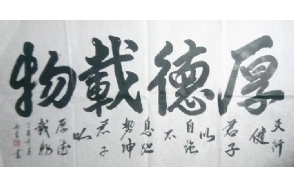 厚德載物
天行
健
君子
以
自強
不
息地
勢坤
君子
以
厚德
載物